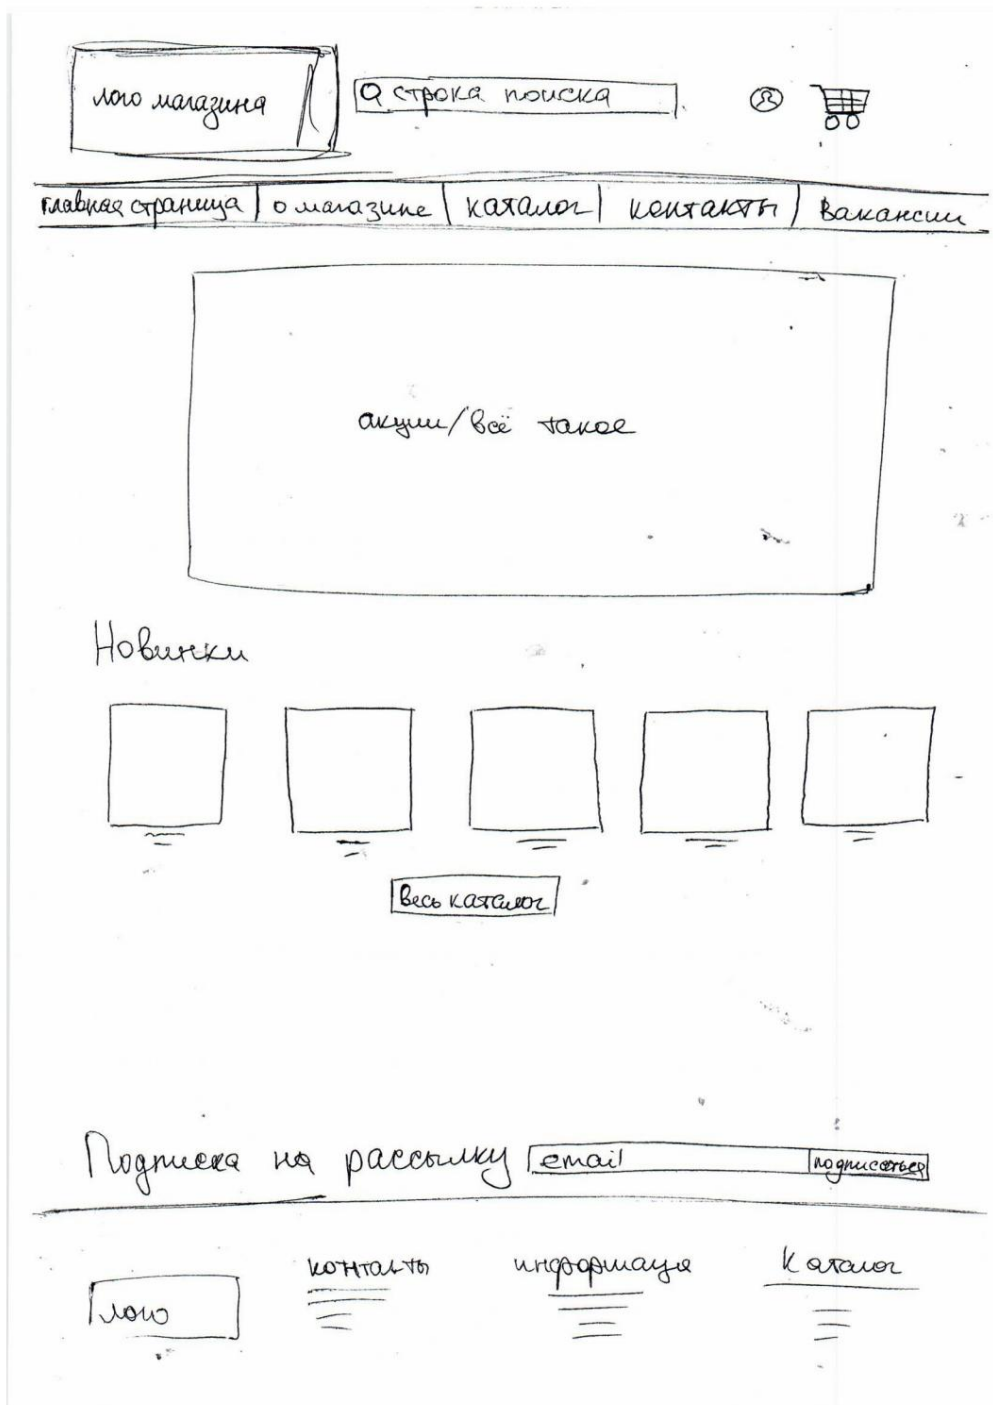 лого магазина
строка поиска
главная страница | о магазине | каталог | контакты | Вакансии
акции/всё такое
Новинки
Весь каталог
Подписка на рассылку email подписаться
контакты информация Каталог
лого